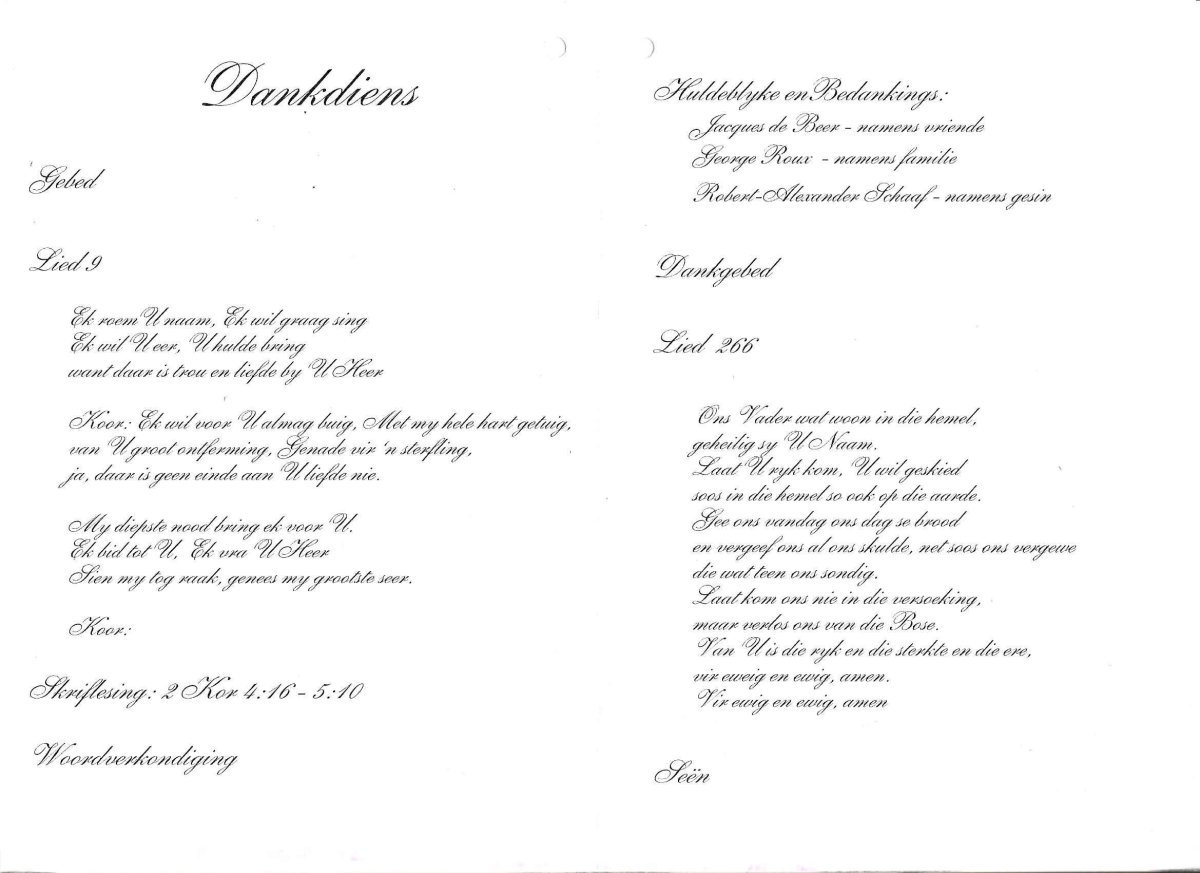 Dankdiens
Gebed
Lied 9
Ek roem U naam, Ek wil graag sing
Ek wil U eer, U hulde bring
want daar is trou en liefde by U Heer
Koor: Ek wil voor U almag buig, Met my hele hart getuig,
van U groot ontferming, Genade vir 'n sterfling,
ja, daar is geen einde aan U liefde nie.
My diepste nood bring ek voor U.
Ek bid tot U, Ek vra U Heer
Sien my tog raak, genees my grootste seer.
Koor:
Skriflesing: 2 Kor 4:16 - 5:10
Woordverkondiging
Huldeblyke en Bedankings:
Jacques de Beer - namens vriende
George Roux - namens familie
Robert-Alexander Schaaf - namens gesin
Dankgebed
Lied 266
Ons Vader wat woon in die hemel,
geheilig sy U Naam.
Laat U ryk kom, U wil geskied
soos in die hemel so ook op die aarde.
Gee ons vandag ons dag se brood
en vergeef ons al ons skulde, net soos ons vergewe
die wat teen ons sondig.
Laat kom ons nie in die versoeking,
maar verlos ons van die Bose.
Van U is die ryk en die sterkte en die ere,
vir eweig en ewig, amen.
Vir ewig en ewig, amen
Seën